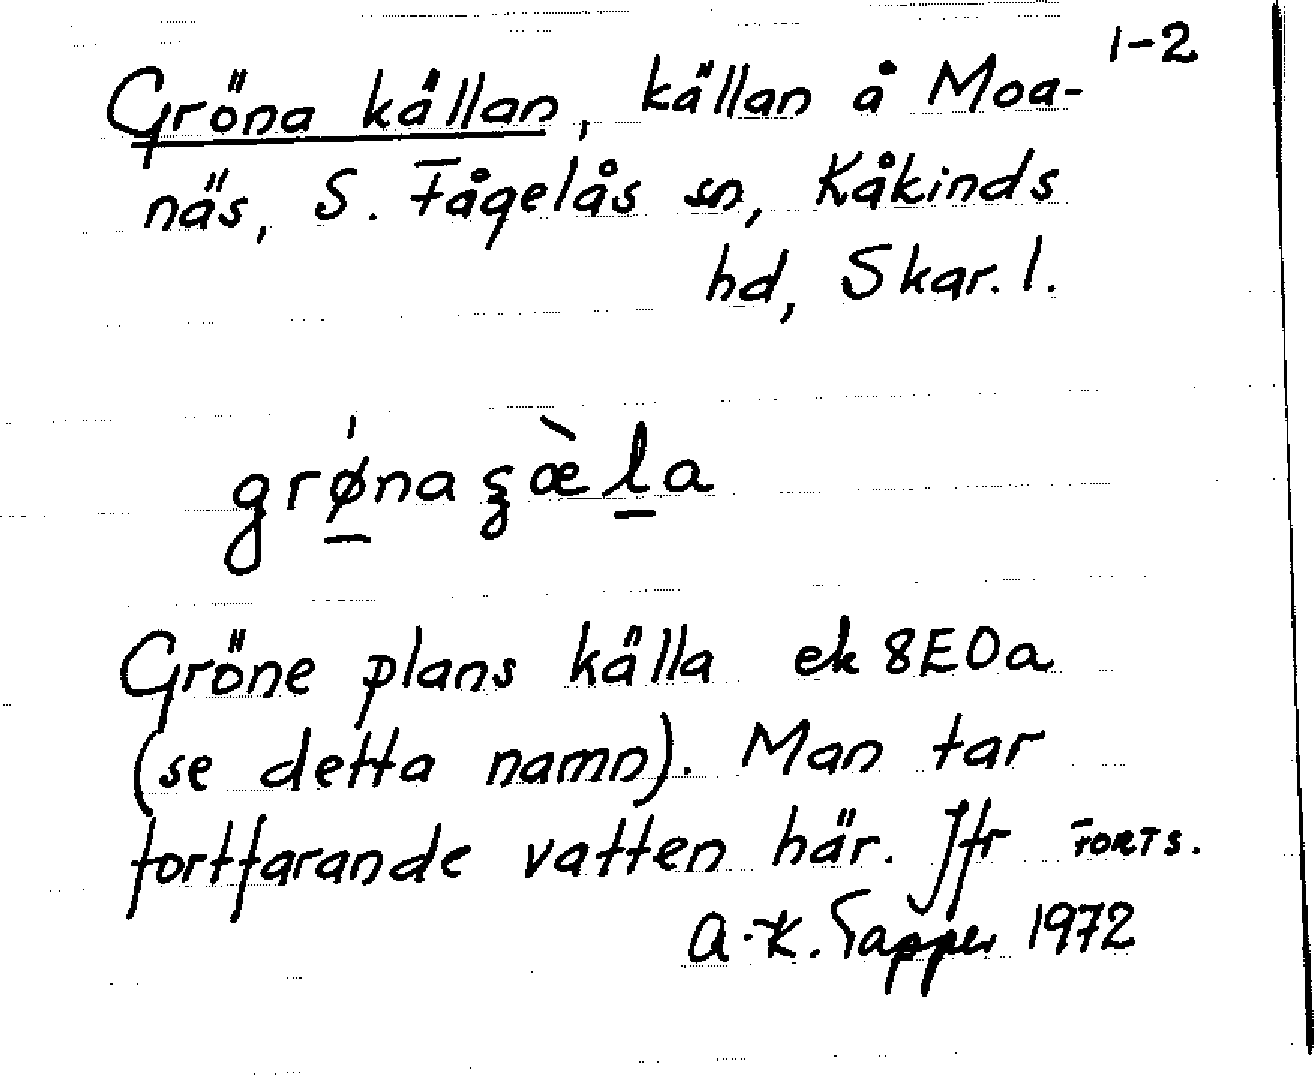 1-2
Gröna källan, källan å Moa-
näs, S. Fågelås sn, Kåkinds
hd, Skar. l.
grǿ̲na ʂæ̀l̲a
Gröne plans källa ek 8E0a
(se detta namn). Man tar
fortfarande vatten här. Jfr FORTS.
A.-K. Tapper 1972